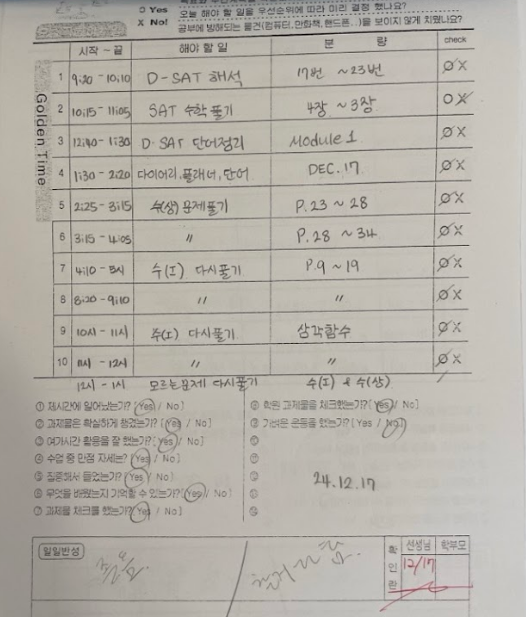 O Yes
X No!
오늘 해야 할 일을 우선순위에 따라 미리 결정 했나요?
공부에 방해되는 물건(컴퓨터, 만화책, 핸드폰...)를 보이지 않게 치웠나요?
Golden Time
시작 - 끝 해야 할 일 분 량 check
1 9:20 - 10:10 D-SAT 해석 17번 ~ 23번 O X
2 10:15 - 11:05 SAT 수학 풀기 4장 ~ 3장 O X
3 12:40 - 1:30 D-SAT 단어정리 Module 1 O X
4 1:30 - 2:20 다이어리, 플래너, 단어 DEC. 17 O X
5 2:25 - 3:15 수(상) 문제풀기 P. 23 ~ 28 O X
6 3:15 - 4:05 〃 P. 28 ~ 34 O X
7 4:10 - 5시 수(I) 다시풀기 P. 9 ~ 19 O X
8 8:20 - 9:10 〃 〃 O X
9 10시 - 11시 수(I) 다시풀기 삼각함수 O X
10 11시 - 12시 〃 〃 O X
12시 - 1시 모르는문제 다시풀기 수(I) & 수(상)
① 제시간에 일어났는가? [Yes / No]
② 과제물은 확실하게 챙겼는가? [Yes / No]
③ 여가시간 활용을 잘 했는가? [Yes / No]
④ 수업 중 만점 자세는? [Yes / No]
⑤ 집중해서 들었는가? [Yes / No]
⑥ 무엇을 배웠는지 기억할 수 있는가? [Yes / No]
⑦ 과제물 체크를 했는가? [Yes / No]
⑧ 학원 과제물을 체크했는가? [Yes / No]
⑨ 가벼운 운동을 했는가? [Yes / No]
⑩
⑪
⑫
⑬
⑭
24.12.17
일일반성
확인란 선생님 학부모
12/17